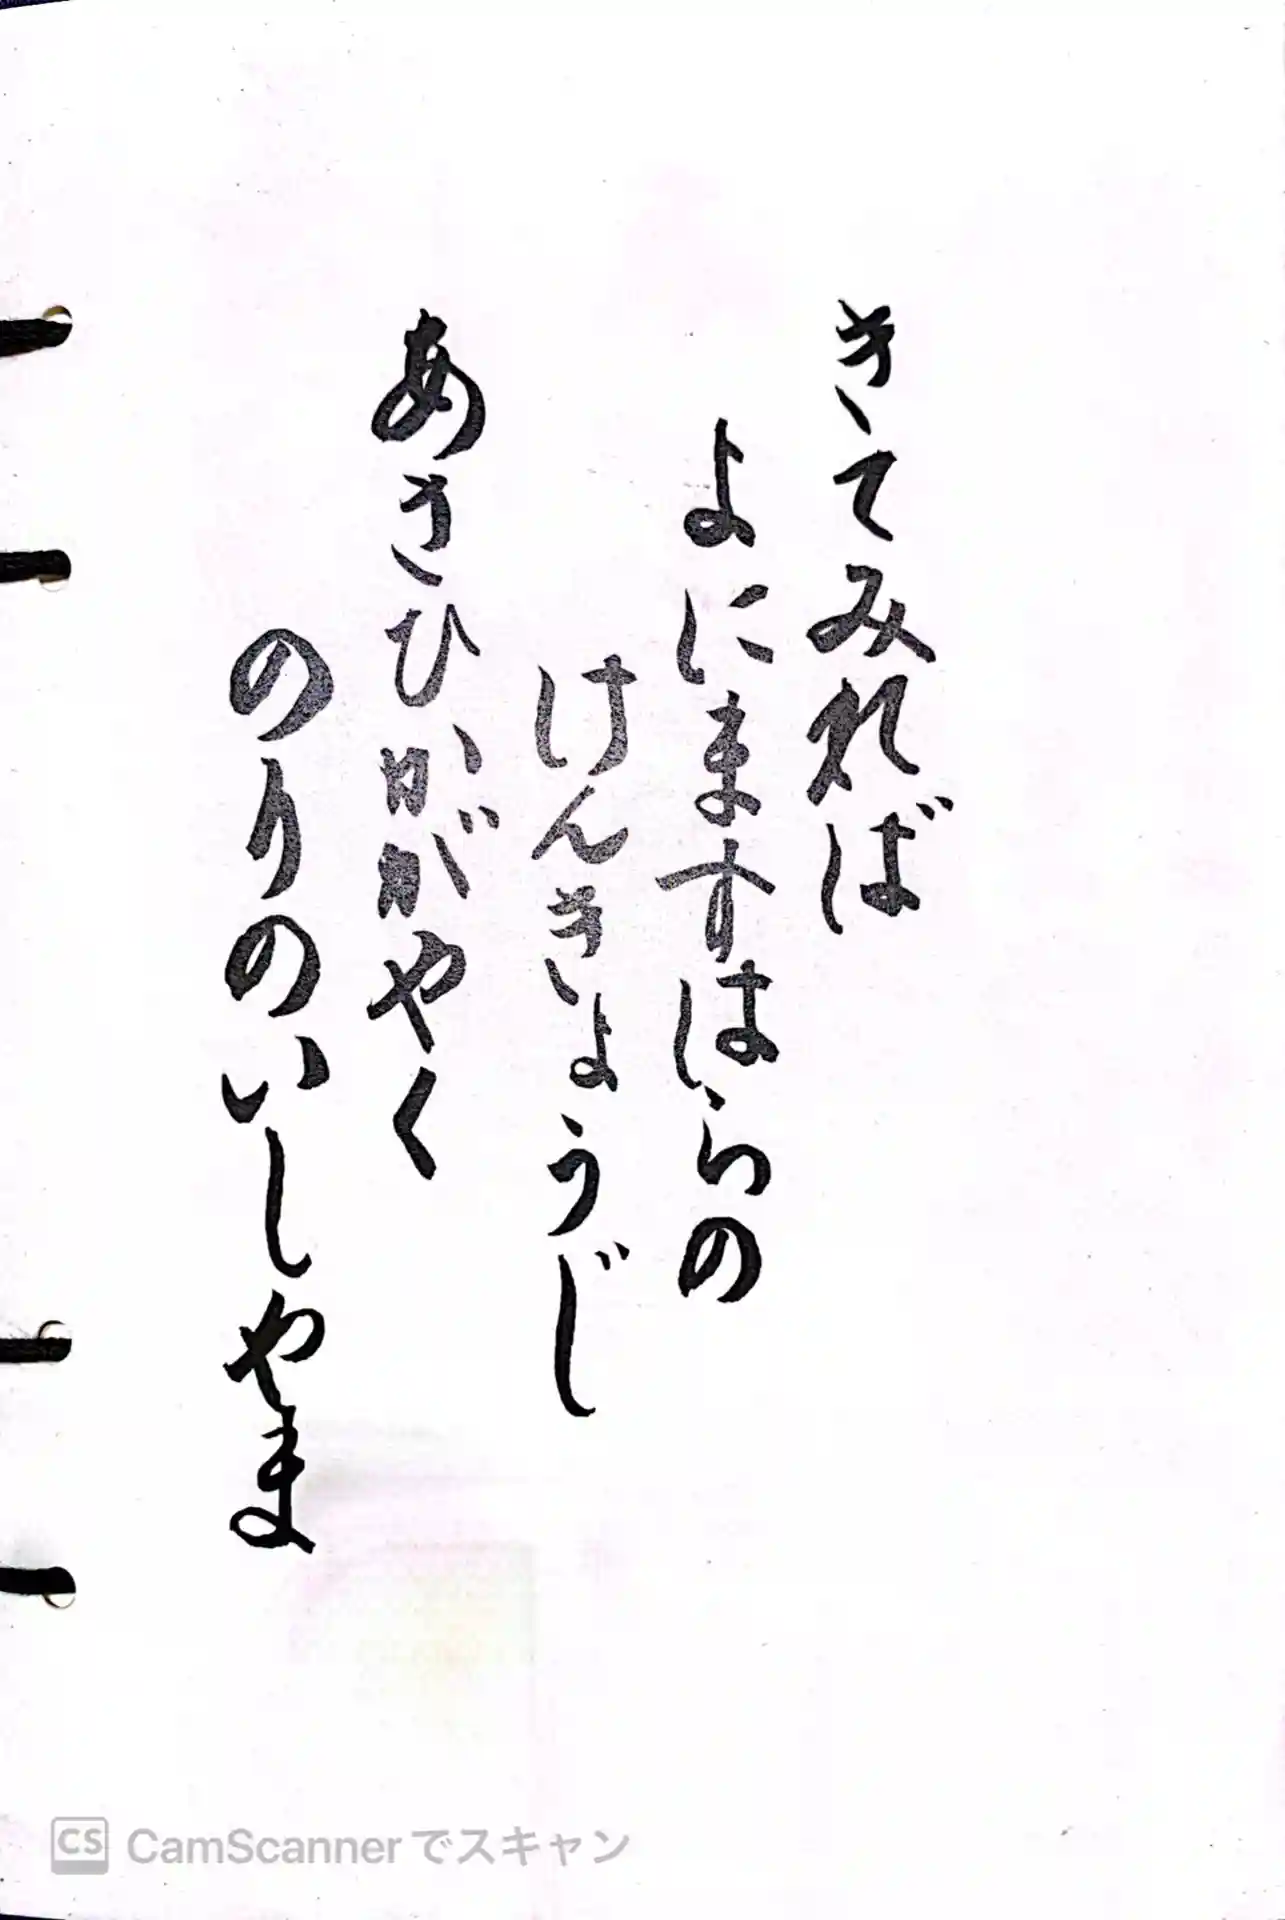 きてみれば
よにますはらの
けんきょうじ
あさひかがやく
のりのいしやま
CS CamScannerでスキャン